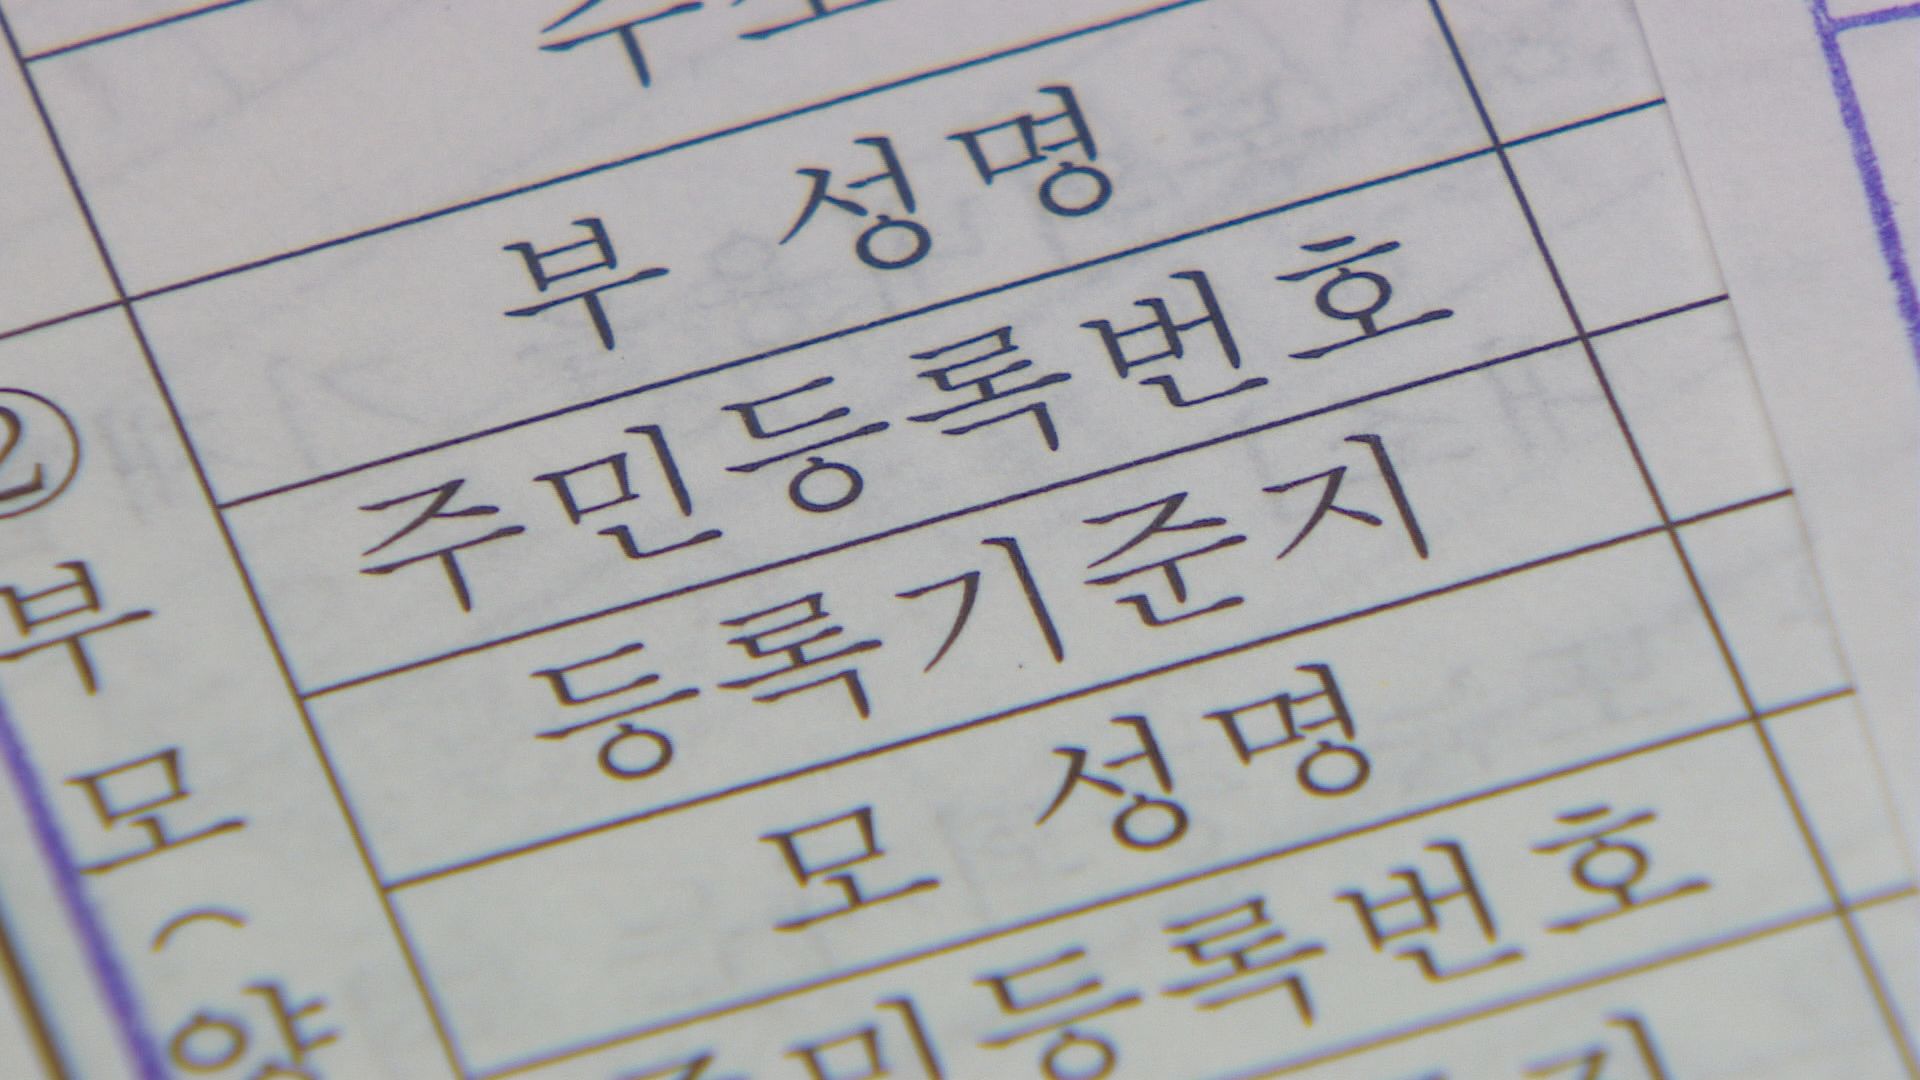 주소
부 성명
주민등록번호
등록기준지
모 성명
주민등록번호
②
부
모
(
양